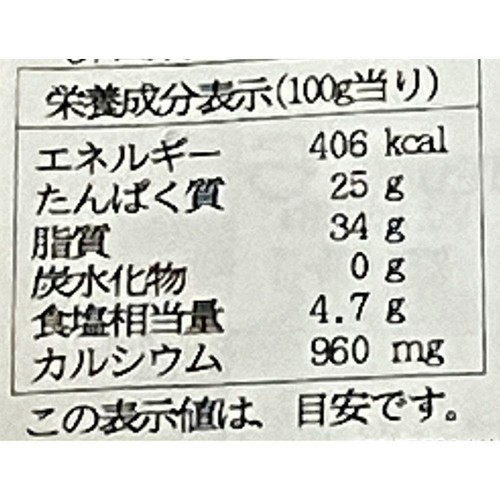 栄養成分表示(100g当り)
エネルギー 406 kcal
たんぱく質 25 g
脂質 34 g
炭水化物 0 g
食塩相当量 4.7 g
カルシウム 960 mg
この表示値は、目安です。